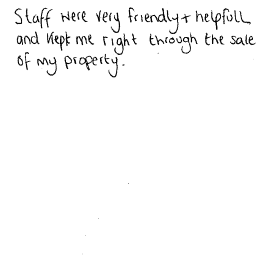 Staff were very friendly + helpfull
and kept me right through the sale
of my property.